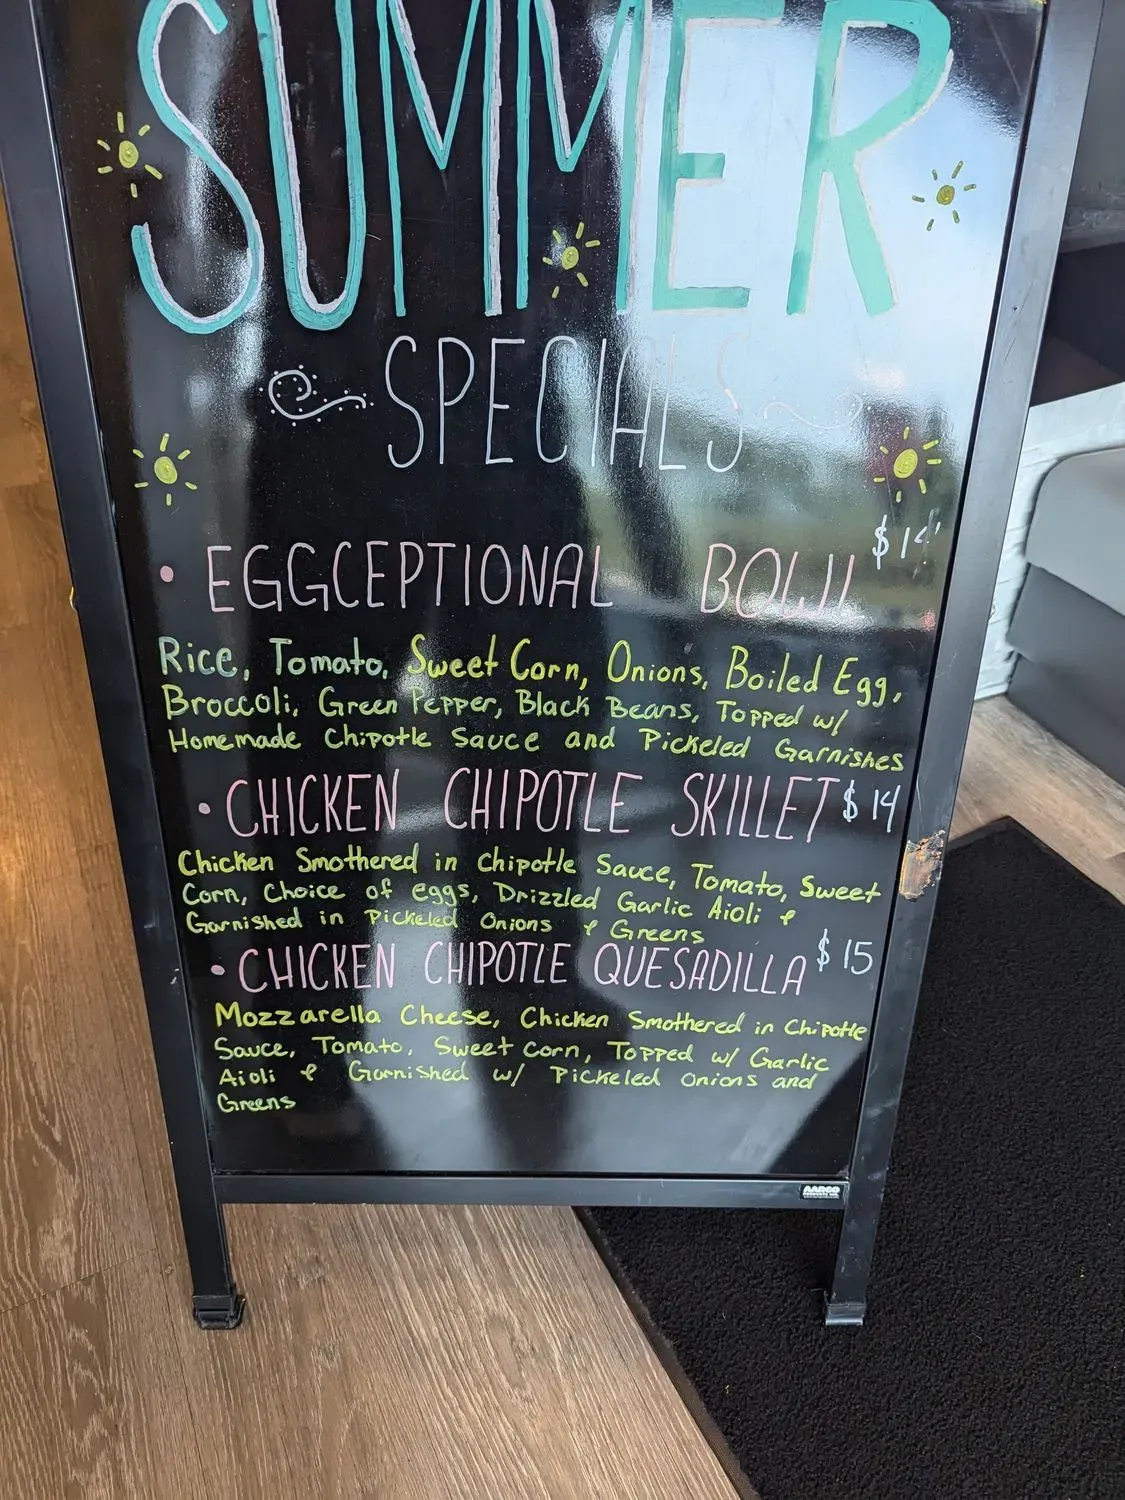 SUMMER
SPECIALS
• EGGCEPTIONAL BOWL $14
Rice, Tomato, Sweet Corn, Onions, Boiled Egg,
Broccoli, Green Pepper, Black Beans, Topped w/
Homemade Chipotle Sauce and Pickeled Garnishes
• CHICKEN CHIPOTLE SKILLET $14
Chicken Smothered in Chipotle Sauce, Tomato, Sweet
Corn, Choice of eggs, Drizzled Garlic Aioli &
Garnished in Pickeled Onions & Greens
• CHICKEN CHIPOTLE QUESADILLA $15
Mozzarella Cheese, Chicken Smothered in Chipotle
Sauce, Tomato, Sweet Corn, Topped w/ Garlic
Aioli & Garnished w/ Pickeled Onions and
Greens
AARCO